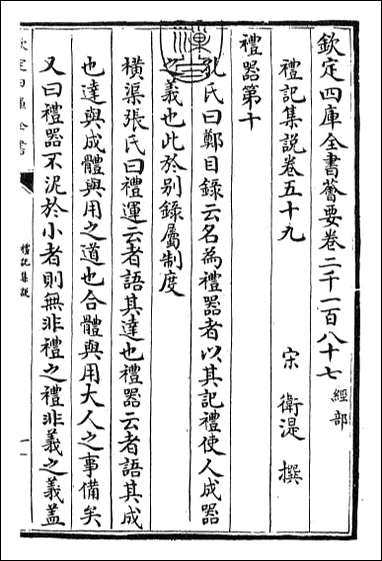 欽定四庫全書薈要卷二千一百八十七 經部
禮記集說卷五十九
宋 衛湜 撰
禮器第十
孔氏曰鄭目錄云名為禮器者以其記禮使人成器
之義也此於别錄屬制度
橫渠張氏曰禮運云者語其達也禮器云者語其成
也達與成體與用之道也合體與用大人之事備矣
又曰禮器不泥於小者則無非禮之禮非義之義蓋
欽定四庫全書
禮記集說
一